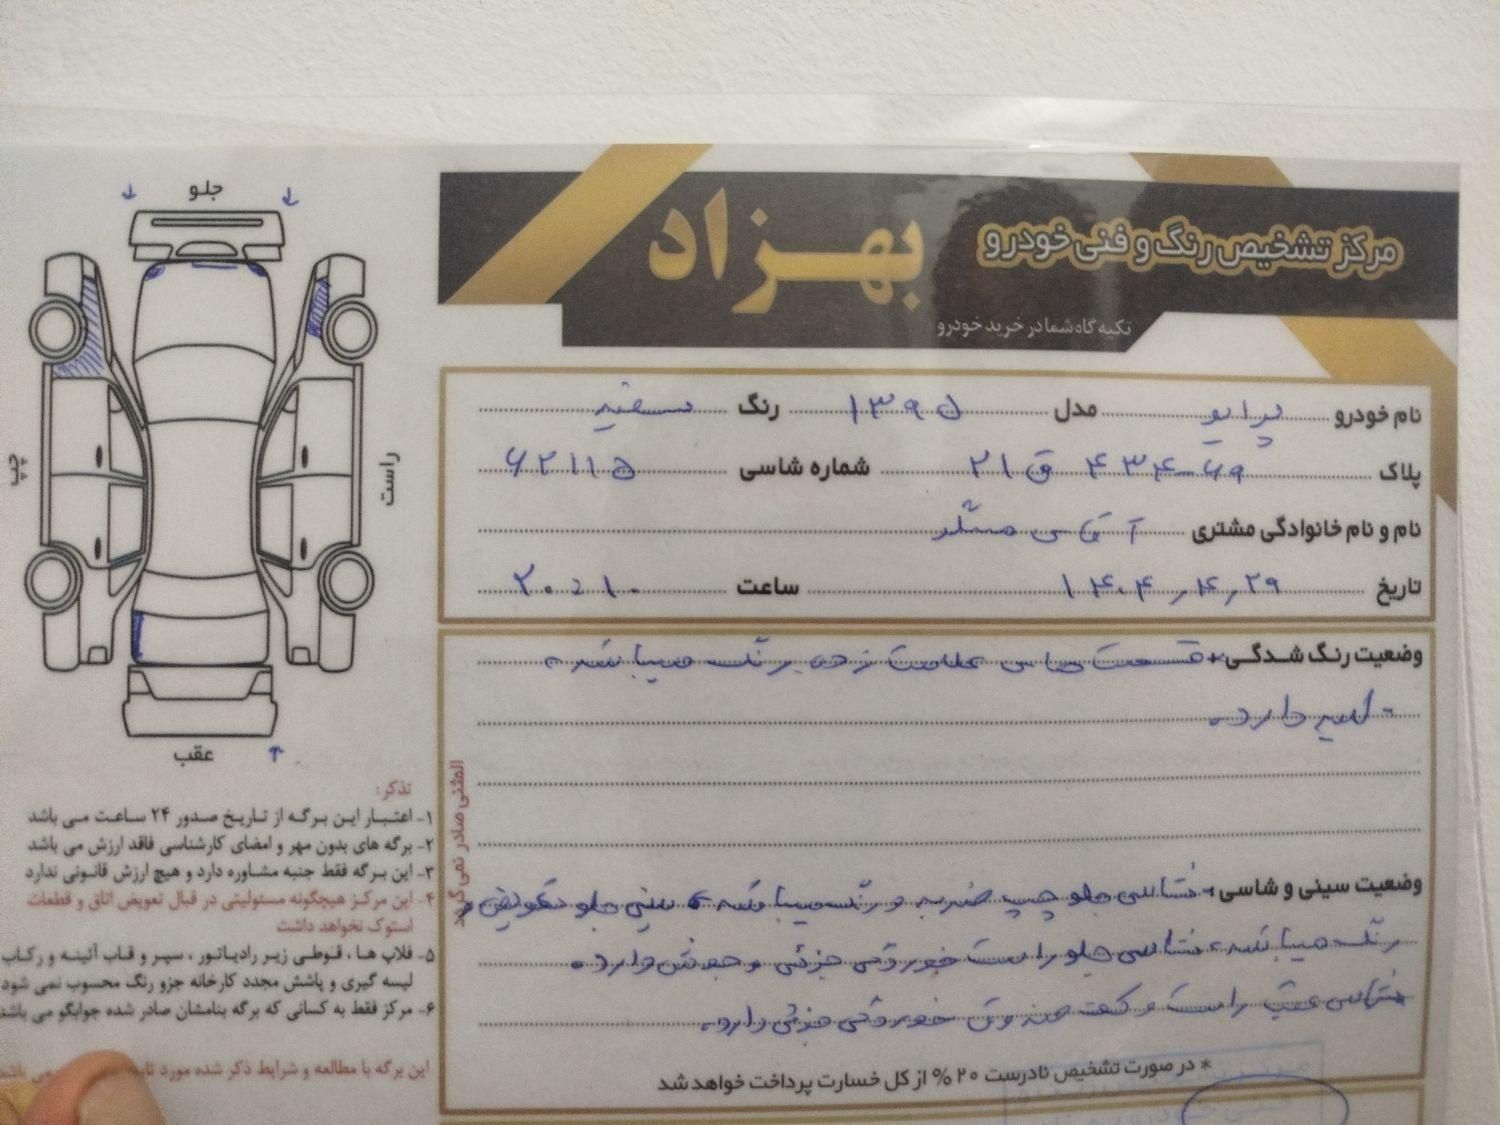 مرکز تشخیص رنگ و فنی خودرو
بهزاد
تکیه گاه شما در خرید خودرو
نام خودرو پراید مدل ۱۳۹۵ رنگ سفید
پلاک ۶۹-۴۳۴ ق ۲۱ شماره شاسی ۶۲۱۱۵
نام و نام خانوادگی مشتری آقای
تاریخ ۱۴۰۴,۴,۲۹ ساعت ۲۰:۱۰
وضعیت رنگ شدگی: قسمت های علامت زده رنگ میباشد.
- لیسه دارد.
وضعیت سینی و شاسی: شاسی جلو چپ ضربه و رنگ میباشد، سینی جلو تعویض و
رنگ میباشد، شاسی جلو راست خوردگی جزئی و جوش دارد.
شاسی عقب راست و کف صندوق خوردگی جزئی دارد.
* در صورت تشخیص نادرست ۲۰ % از کل خسارت پرداخت خواهد شد
المثنی صادر نمی
جلو
چپ
راست
عقب
تذکر:
۱- اعتبار این برگه از تاریخ صدور ۲۴ ساعت می باشد
۲- برگه های بدون مهر و امضای کارشناسی فاقد ارزش می باشد
۳- این برگه فقط جنبه مشاوره دارد و هیچ ارزش قانونی ندارد
۴- این مرکز هیچگونه مسئولیتی در قبال تعویض اتاق و قطعات
استوک نخواهد داشت
۵- فلاپ ها ، قوطی زیر رادیاتور ، سپر و قاب آئینه و رکاب
لیسه گیری و پاشش مجدد کارخانه جزو رنگ محسوب نمی شود
۶- مرکز فقط به کسانی که برگه بنامشان صادر شده جوابگو می باشد
این برگه با مطالعه و شرایط ذکر شده مورد